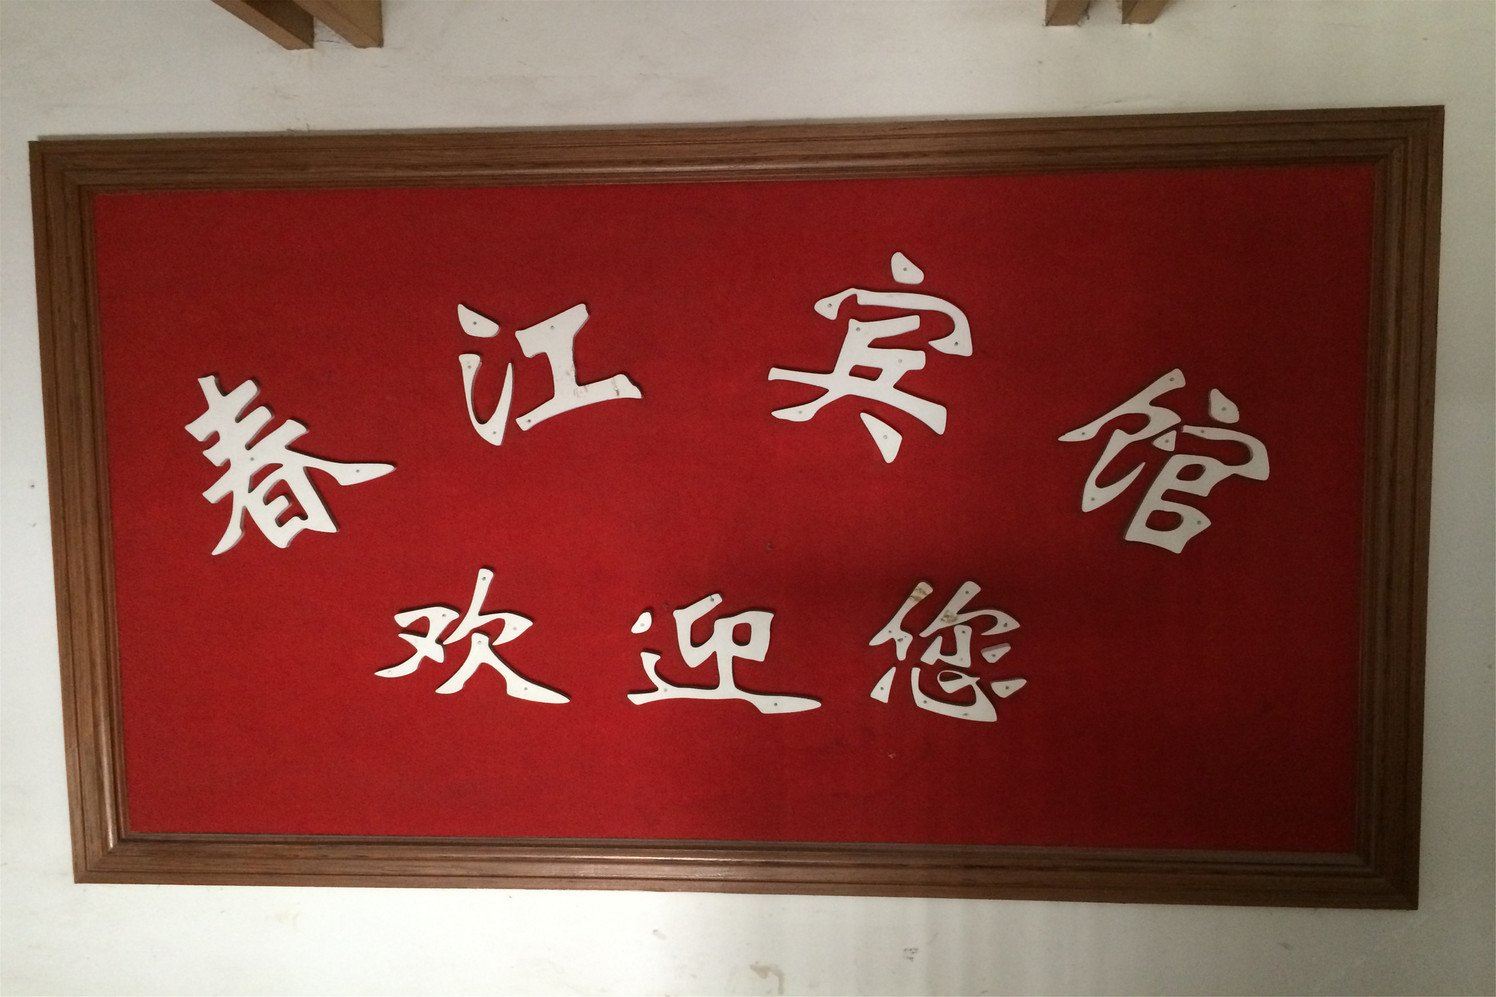 春江宾馆
欢迎您